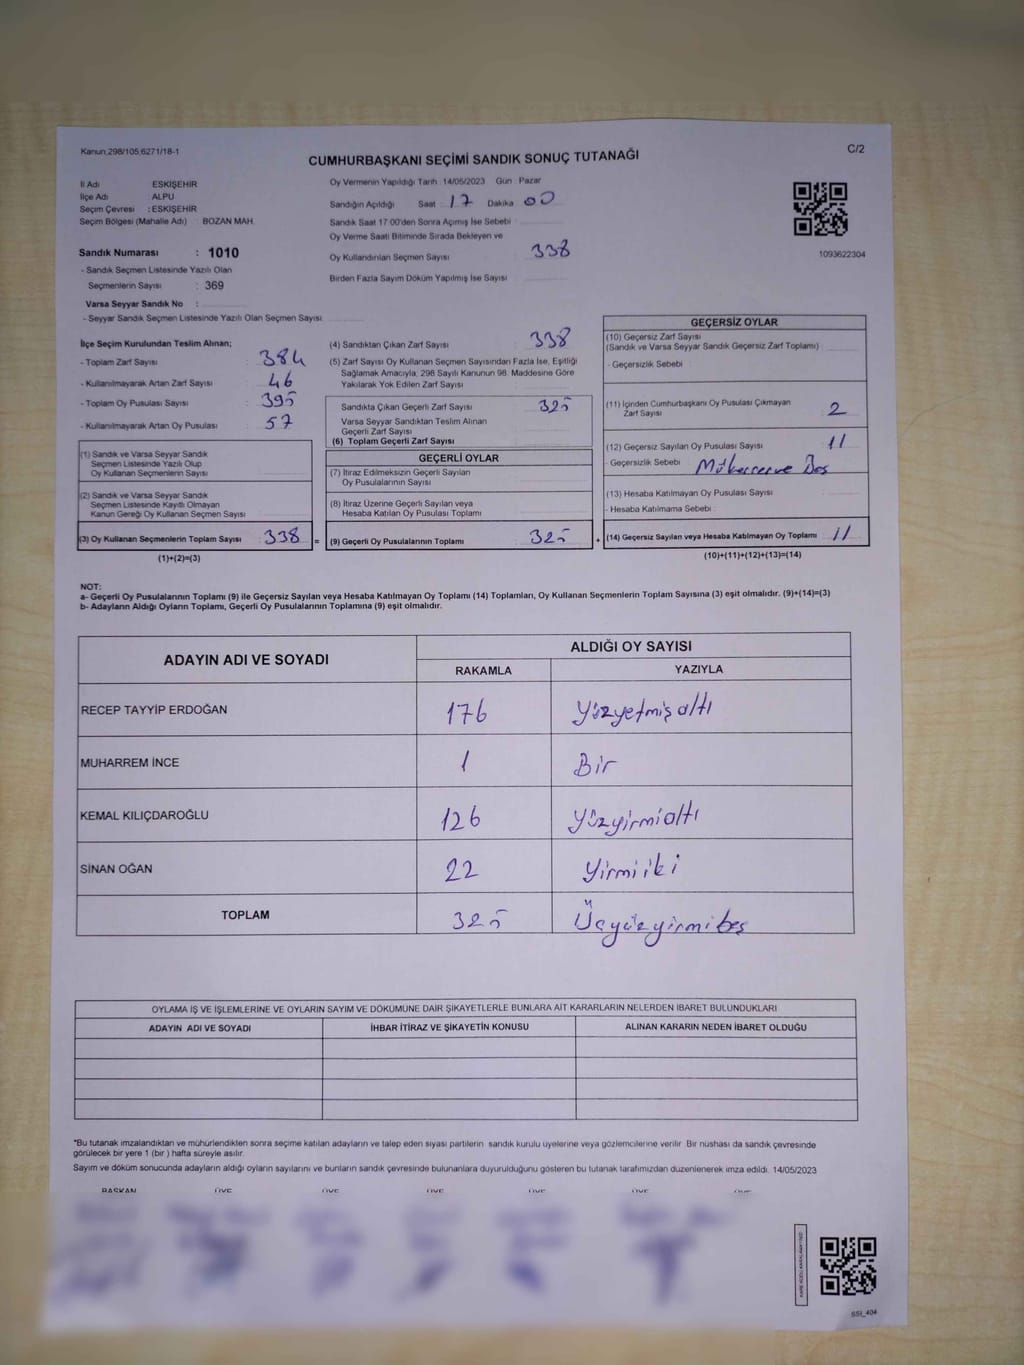 Kanun,298/105,6271/18-1
C/2
CUMHURBAŞKANI SEÇİMİ SANDIK SONUÇ TUTANAĞI
İl Adı ESKİŞEHİR
İlçe Adı : ALPU
Seçim Çevresi : ESKİŞEHİR
Seçim Bölgesi (Mahalle Adı) : BOZAN MAH.
Sandık Numarası : 1010
- Sandık Seçmen Listesinde Yazılı Olan
Seçmenlerin Sayısı : 369
Varsa Seyyar Sandık No :
- Seyyar Sandık Seçmen Listesinde Yazılı Olan Seçmen Sayısı
Oy Vermenin Yapıldığı Tarih : 14/05/2023 Gün : Pazar
Sandığın Açıldığı Saat 17 Dakika 00
Sandık Saat 17:00'den Sonra Açmış İse Sebebi
Oy Verme Saati Bitiminde Sırada Bekleyen ve
Oy Kullandırılan Seçmen Sayısı 338
Birden Fazla Sayım Döküm Yapılmış İse Sayısı
1093622304
İlçe Seçim Kurulundan Teslim Alınan;
- Toplam Zarf Sayısı 384
- Kullanılmayarak Artan Zarf Sayısı 46
- Toplam Oy Pusulası Sayısı 395
- Kullanılmayarak Artan Oy Pusulası 57
(1) Sandık ve Varsa Seyyar Sandık
Seçmen Listesinde Yazılı Olup
Oy Kullanan Seçmenlerin Sayısı
(2) Sandık ve Varsa Seyyar Sandık
Seçmen Listesinde Kayıtlı Olmayan
Kanun Gereği Oy Kullanan Seçmen Sayısı
(3) Oy Kullanan Seçmenlerin Toplam Sayısı : 338 =
(1)+(2)=(3)
(4) Sandıktan Çıkan Zarf Sayısı : 338
(5) Zarf Sayısı Oy Kullanan Seçmen Sayısından Fazla İse, Eşitliği
Sağlamak Amacıyla, 298 Sayılı Kanunun 98. Maddesine Göre
Yakılarak Yok Edilen Zarf Sayısı
Sandıkta Çıkan Geçerli Zarf Sayısı : 325
Varsa Seyyar Sandıktan Teslim Alınan
Geçerli Zarf Sayısı
(6) Toplam Geçerli Zarf Sayısı
GEÇERLİ OYLAR
(7) İtiraz Edilmeksizin Geçerli Sayılan
Oy Pusulalarının Sayısı
(8) İtiraz Üzerine Geçerli Sayılan veya
Hesaba Katılan Oy Pusulası Toplamı
(9) Geçerli Oy Pusulalarının Toplamı : 325 +
GEÇERSİZ OYLAR
(10) Geçersiz Zarf Sayısı
(Sandık ve Varsa Seyyar Sandık Geçersiz Zarf Toplamı)
- Geçersizlik Sebebi
(11) İçinden Cumhurbaşkanı Oy Pusulası Çıkmayan
Zarf Sayısı 2
(12) Geçersiz Sayılan Oy Pusulası Sayısı : 11
- Geçersizlik Sebebi
(13) Hesaba Katılmayan Oy Pusulası Sayısı
- Hesaba Katılmama Sebebi
(14) Geçersiz Sayılan veya Hesaba Katılmayan Oy Toplamı 11
(10)+(11)+(12)+(13)=(14)
NOT:
a- Geçerli Oy Pusulalarının Toplamı (9) ile Geçersiz Sayılan veya Hesaba Katılmayan Oy Toplamı (14) Toplamları, Oy Kullanan Seçmenlerin Toplam Sayısına (3) eşit olmalıdır. (9)+(14)=(3)
b- Adayların Aldığı Oyların Toplamı, Geçerli Oy Pusulalarının Toplamına (9) eşit olmalıdır.
ADAYIN ADI VE SOYADI
ALDIĞI OY SAYISI
RAKAMLA YAZIYLA
RECEP TAYYİP ERDOĞAN 176 Yüzyetmişaltı
MUHARREM İNCE 1 Bir
KEMAL KILIÇDAROĞLU 126 Yüzyirmialtı
SİNAN OĞAN 22 Yirmiiki
TOPLAM 325 Üçyüzyirmibeş
OYLAMA İŞ VE İŞLEMLERİNE VE OYLARIN SAYIM VE DÖKÜMÜNE DAİR ŞİKAYETLERLE BUNLARA AİT KARARLARIN NELERDEN İBARET BULUNDUKLARI
ADAYIN ADI VE SOYADI İHBAR İTİRAZ VE ŞİKAYETİN KONUSU ALINAN KARARIN NEDEN İBARET OLDUĞU
*Bu tutanak imzalandıktan ve mühürlendikten sonra seçime katılan adayların ve talep eden siyasi partilerin sandık kurulu üyelerine veya gözlemcilerine verilir. Bir nüshası da sandık çevresinde
görülecek bir yere 1 (bir ) hafta süreyle asılır.
Sayım ve döküm sonucunda adayların aldığı oyların sayılarını ve bunların sandık çevresinde bulunanlara duyurulduğunu gösteren bu tutanak tarafımızdan düzenlenerek imza edildi. 14/05/2023
BAŞKAN ÜYE ÜYE ÜYE ÜYE ÜYE ÜYE
SSI_404